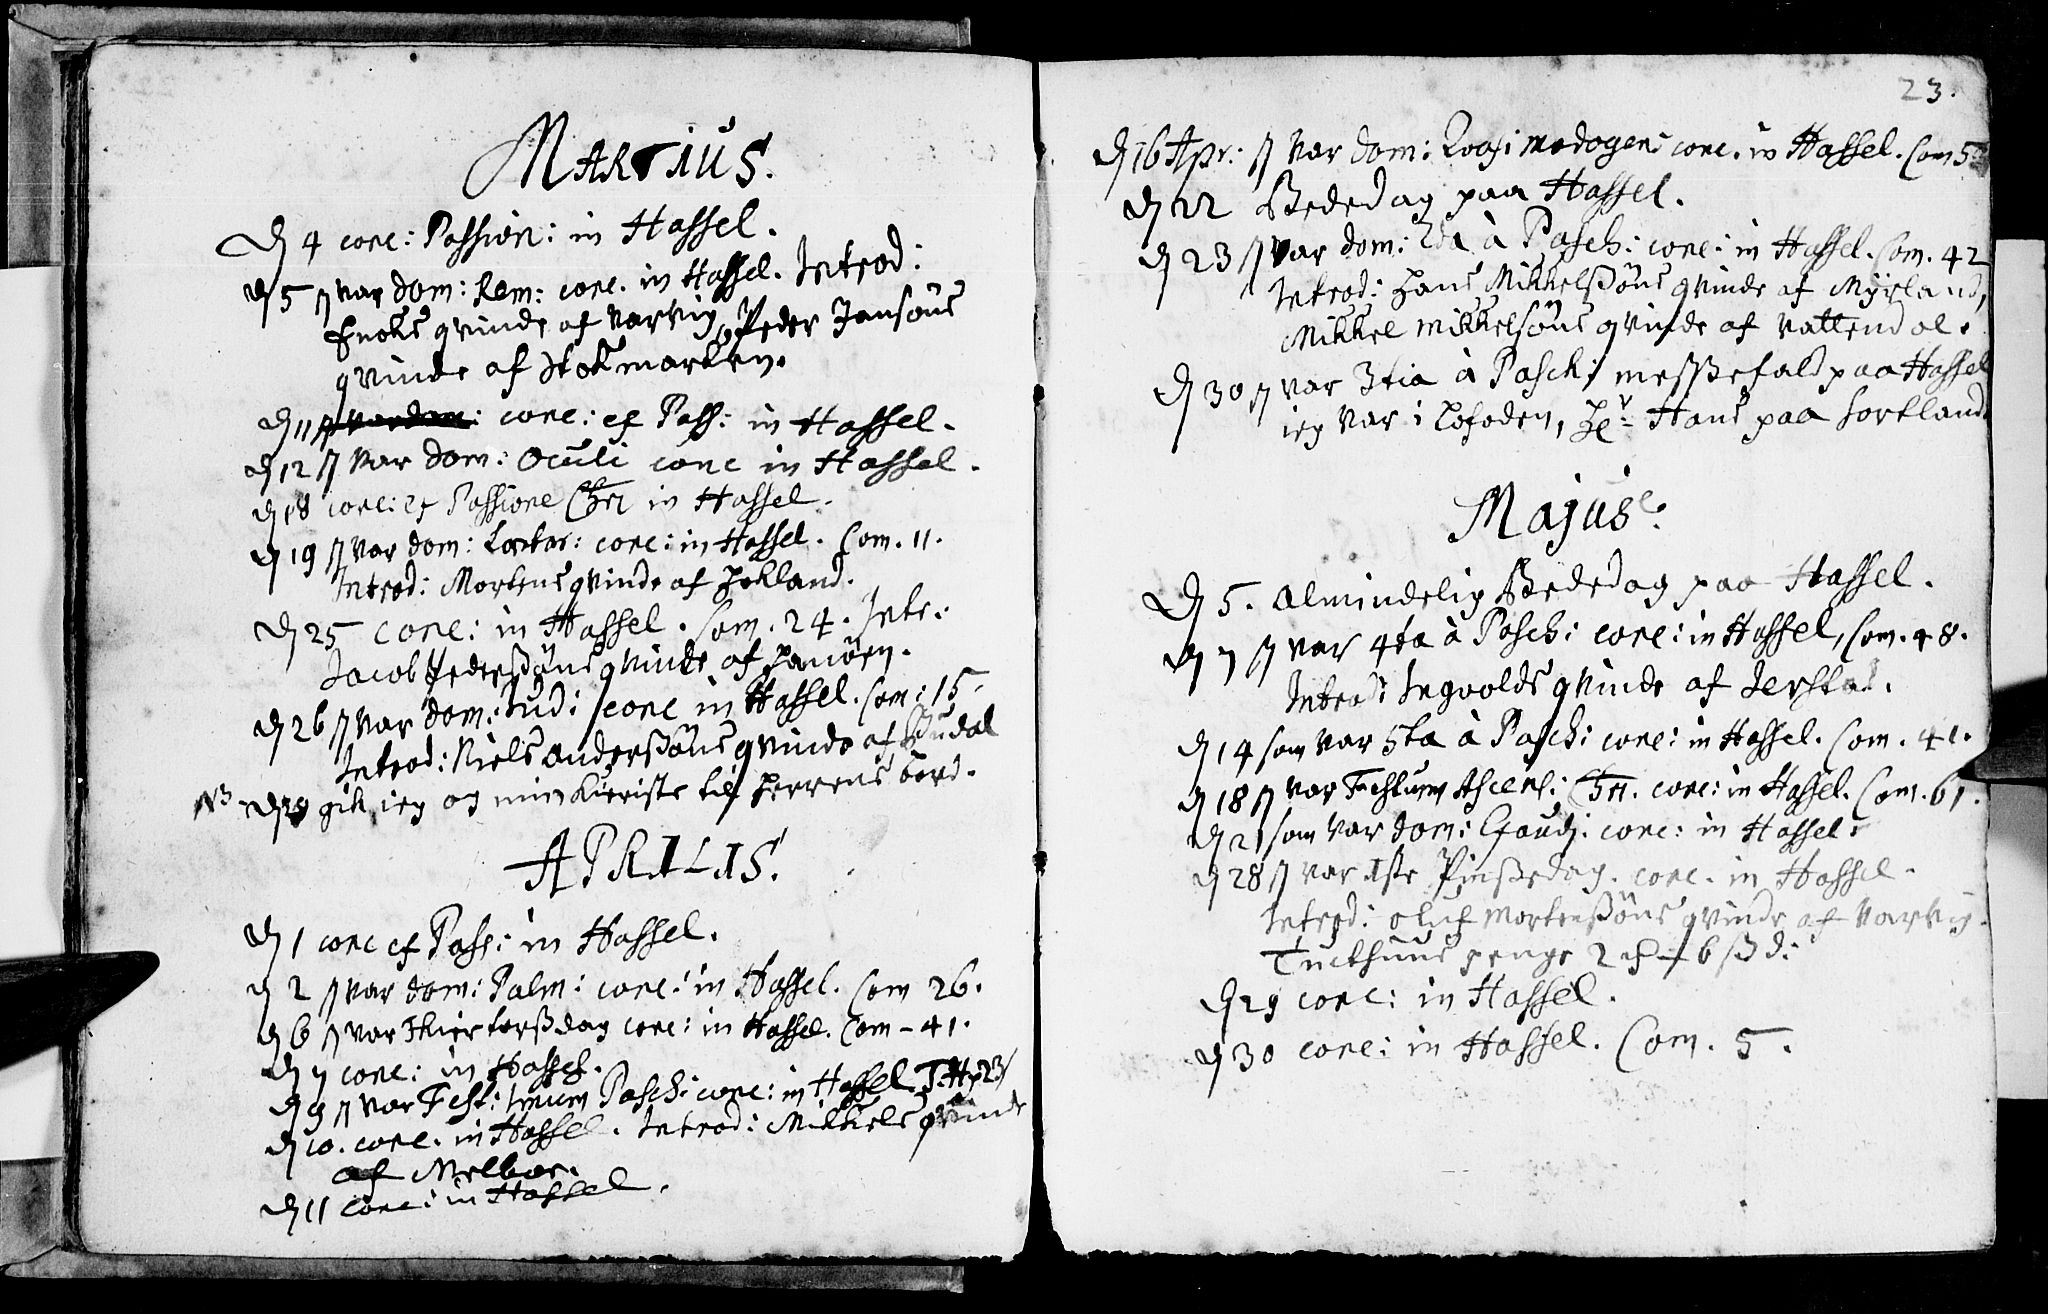 MARTIUS.
D 4 conc: Passion: in Hassel.
D 5 s var dom: Rem: conc. in Hassel. Introd:
Enoks qvinde af Varvig, Peder Jansøns
qvinde af Stokmarken.
D 11 s var dom: conc: ex Pass: in Hassel.
D 12 s var dom: Oculi conc in Hassel.
D 18 conc: ex Passione Chri in Hassel.
D 19 s var dom: Lætar: conc: in Hassel. Com. 11.
Introd: Mortens qvinde af Hokland.
D 25 conc: in Hassel. Com. 24. Intr:
Jacob Pederssøns qvinde af Hanøen.
D 26 s var dom: Jud: conc in Hassel. Com: 15.
Introd: Niels Anderssøns qvinde af Budal
NB D 29 gik ieg og min Kieriste til Herrens bord.
APRILIS.
D 1 conc ex Pass: in Hassel.
D 2 s var dom: Palm: conc: in Hassel. Com 26.
D 6 s var Skiertorssdag conc: in Hassel. Com - 41.
D 7 conc: in Hassel.
D 9 s var Fest: 1mum Pasch: conc: in Hassel.
D 10. conc. in Hassel. Introd: Mikkels qvinde
af Melboe.
D 11 conc: in Hassel.
23.
D 16 Apr: s var dom: Qvasimodogeni conc. in Hassel. Com 5
D 22 Bededag paa Hassel.
D 23 s var dom: 2da à Pasch: conc: in Hassel. Com. 42
Introd: Hans Mikkelssøns qvinde af Myrland,
Mikkel Mikkelsøns qvinde af Vattendal.
D 30 s var 3tia à Pasch: messefald paa Hassel
ieg var i Lofoden, Hr Hans paa Sortland.
Majus.
D 5. Almindelig Bededag paa Hassel.
D 7 s var 4ta à Pasch: conc: in Hassel, Com. 48.
Introd: Ingvolds qvinde af Jerstad.
D 14 som var 5ta à Pasch: conc: in Hassel. Com. 41.
D 18 s var Festum Ascens: Chri. conc: in Hassel. Com. 61.
D 21 som var dom: Exaudi: conc: in Hassel:
D 28 s var 1ste Pinssedag. conc. in Hassel.
Introd: Oluf Mortenssøns qvinde af Varvig.
Tuckthuus penge 2 6 ß d:
D 29 conc: in Hassel.
D 30 conc: in Hassel. Com. 5.